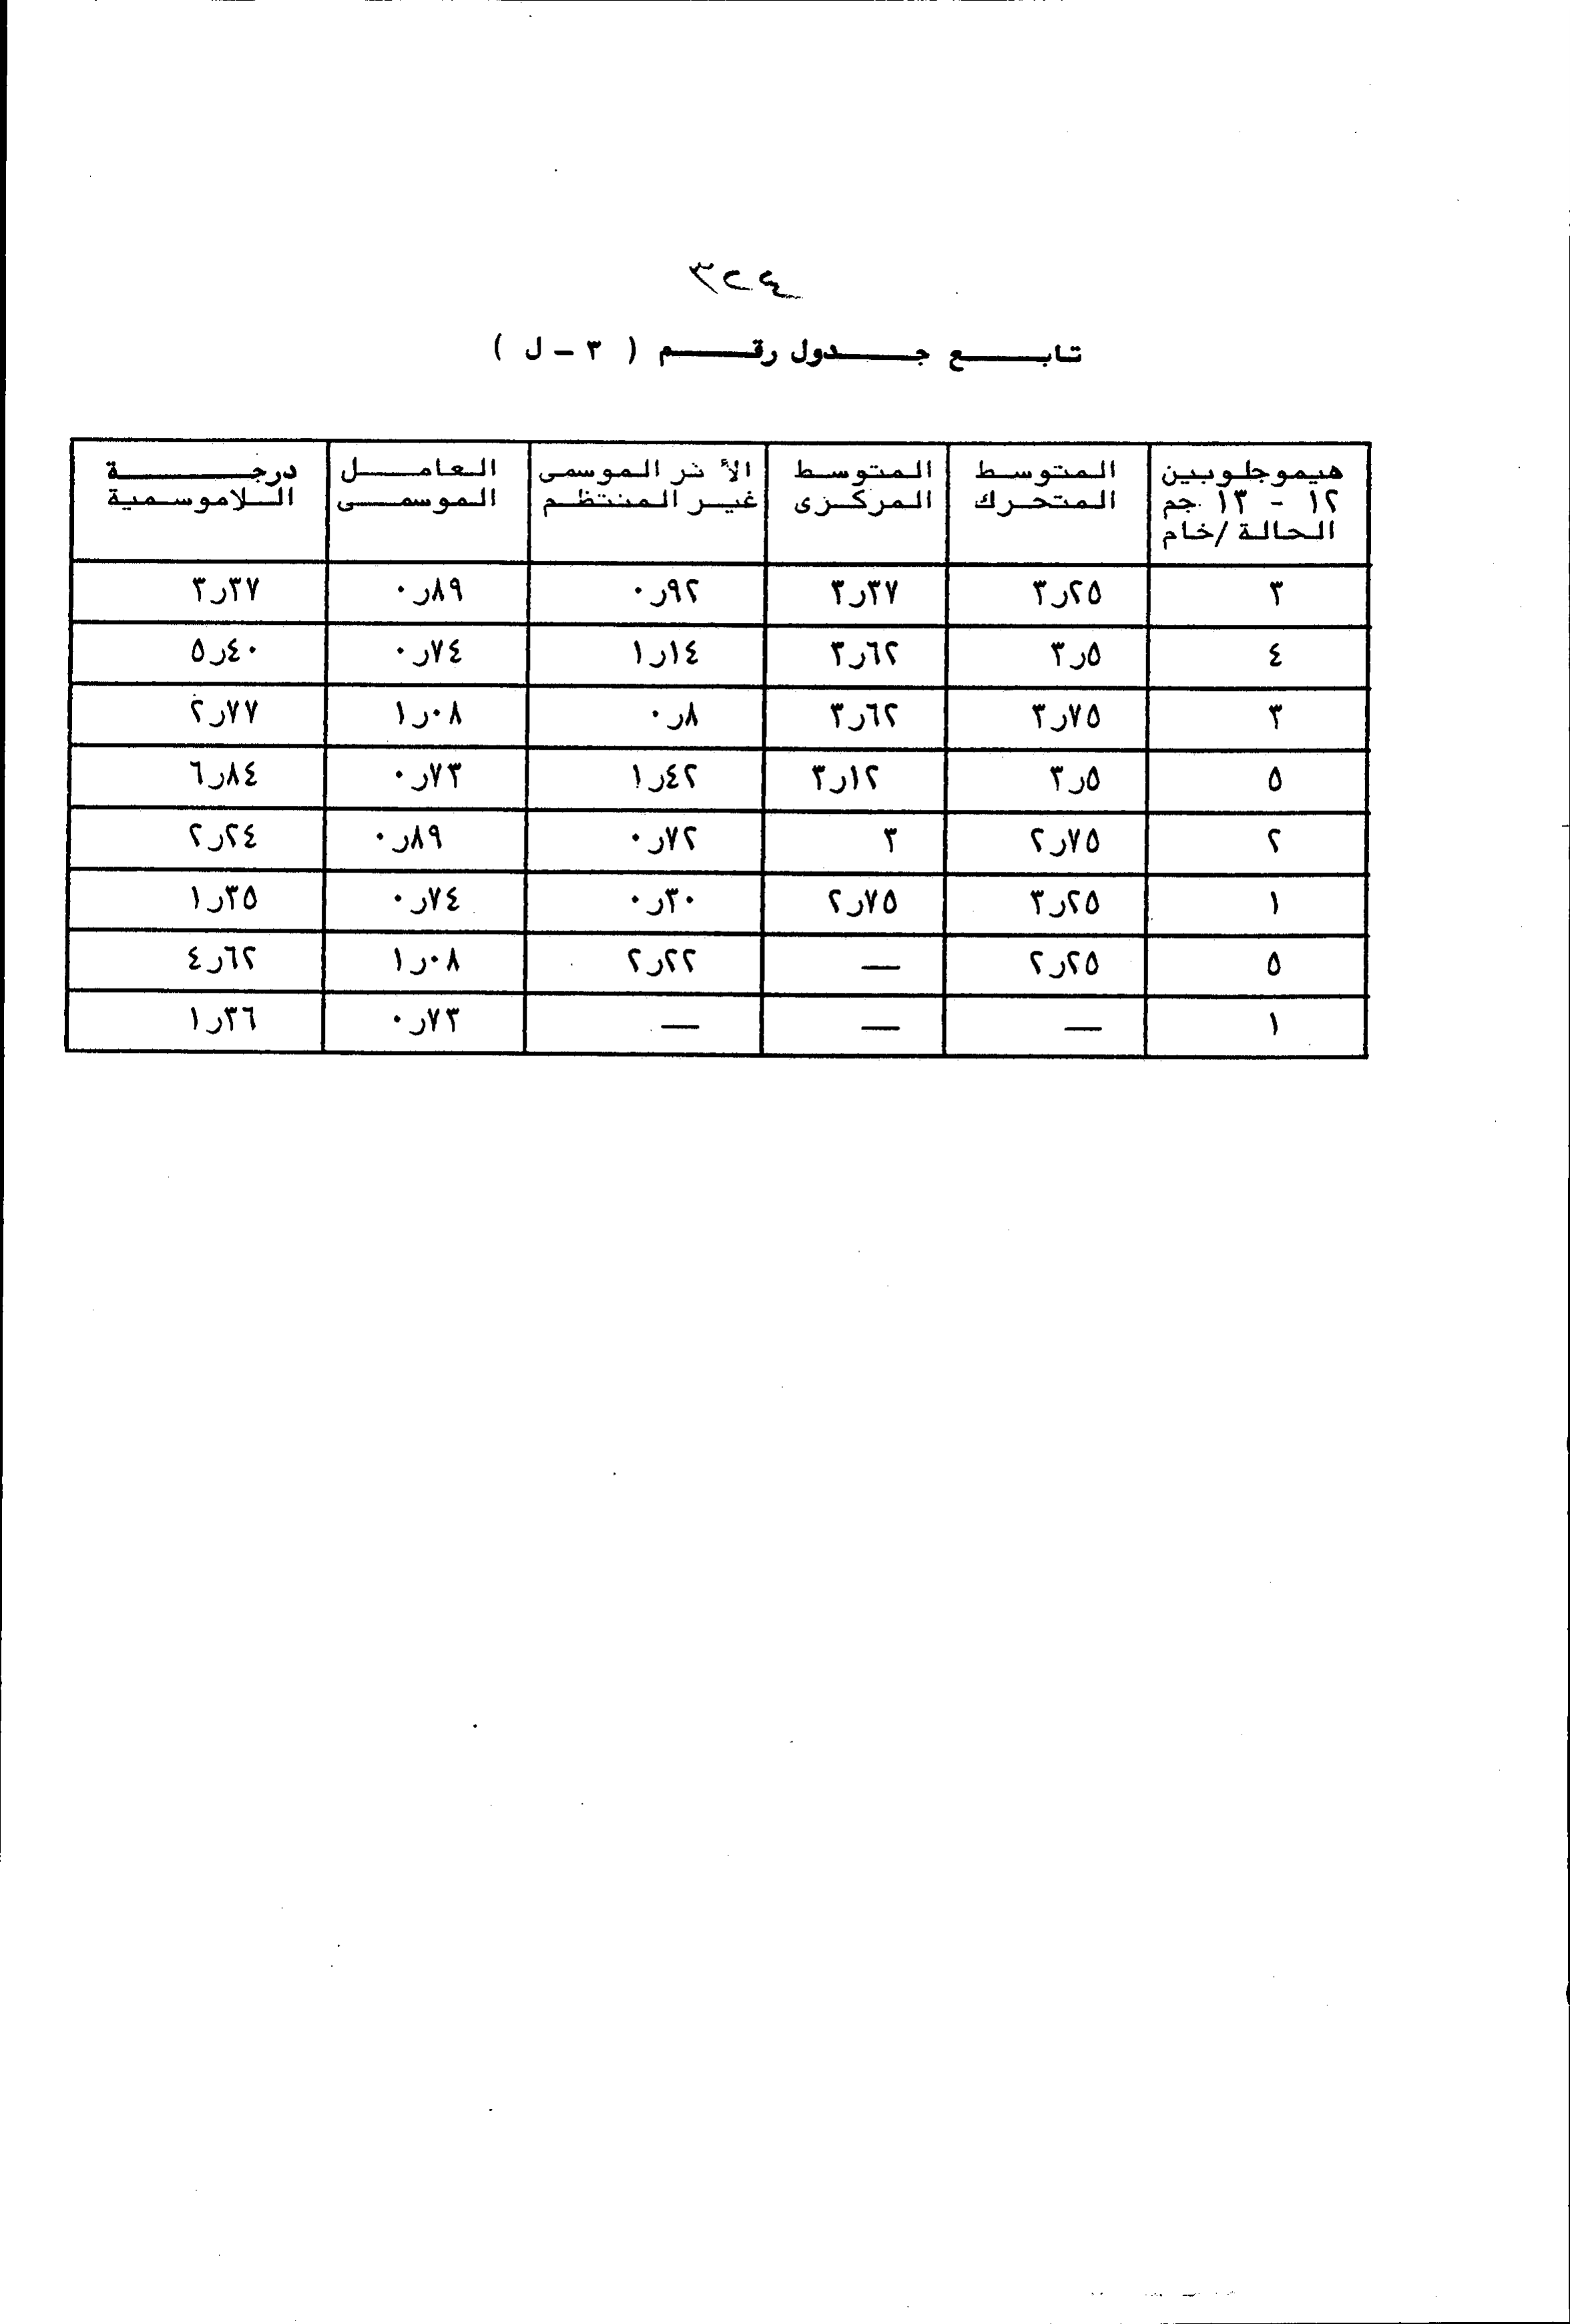 ٣٢٤
تابع جدول رقم ( ٣ - ل )
هيموجلوبين ١٢ - ١٣ جم الحالة /خام | المتوسط المتحرك | المتوسط المركزى | الأثر الموسمى غير المنتظم | العامل الموسمى | درجة اللاموسمية
٣ | ٣ر٢٥ | ٣ر٣٧ | ٠ر٩٢ | ٠ر٨٩ | ٣ر٣٧
٤ | ٣ر٥ | ٣ر٦٢ | ١ر١٤ | ٠ر٧٤ | ٥ر٤٠
٣ | ٣ر٧٥ | ٣ر٦٢ | ٠ر٨ | ١ر٠٨ | ٢ر٧٧
٥ | ٣ر٥ | ٣ر١٢ | ١ر٤٢ | ٠ر٧٣ | ٦ر٨٤
٢ | ٢ر٧٥ | ٣ | ٠ر٧٢ | ٠ر٨٩ | ٢ر٢٤
١ | ٣ر٢٥ | ٢ر٧٥ | ٠ر٣٠ | ٠ر٧٤ | ١ر٣٥
٥ | ٢ر٢٥ | — | ٢ر٢٢ | ١ر٠٨ | ٤ر٦٢
١ | — | — | — | ٠ر٧٣ | ١ر٣٦